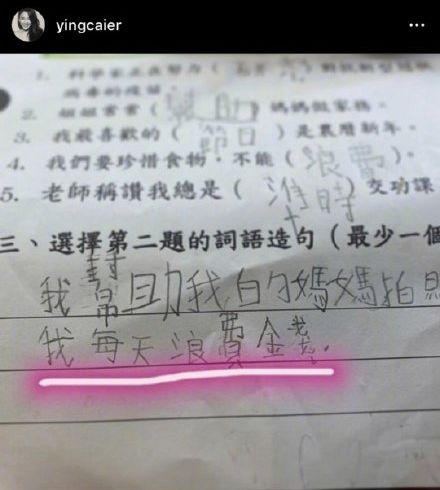 yingcaier
1. 科學家正在努力（
病毒的疫苗。
2. 姐姐常常（幫助）媽媽做家務。
3. 我最喜歡的（節日）是農曆新年。
4. 我們要珍惜食物，不能（浪費）。
5. 老師稱讚我總是（準時）交功課
三、選擇第二題的詞語造句（最少一個
我幫助我的媽媽拍
我每天浪費金錢。